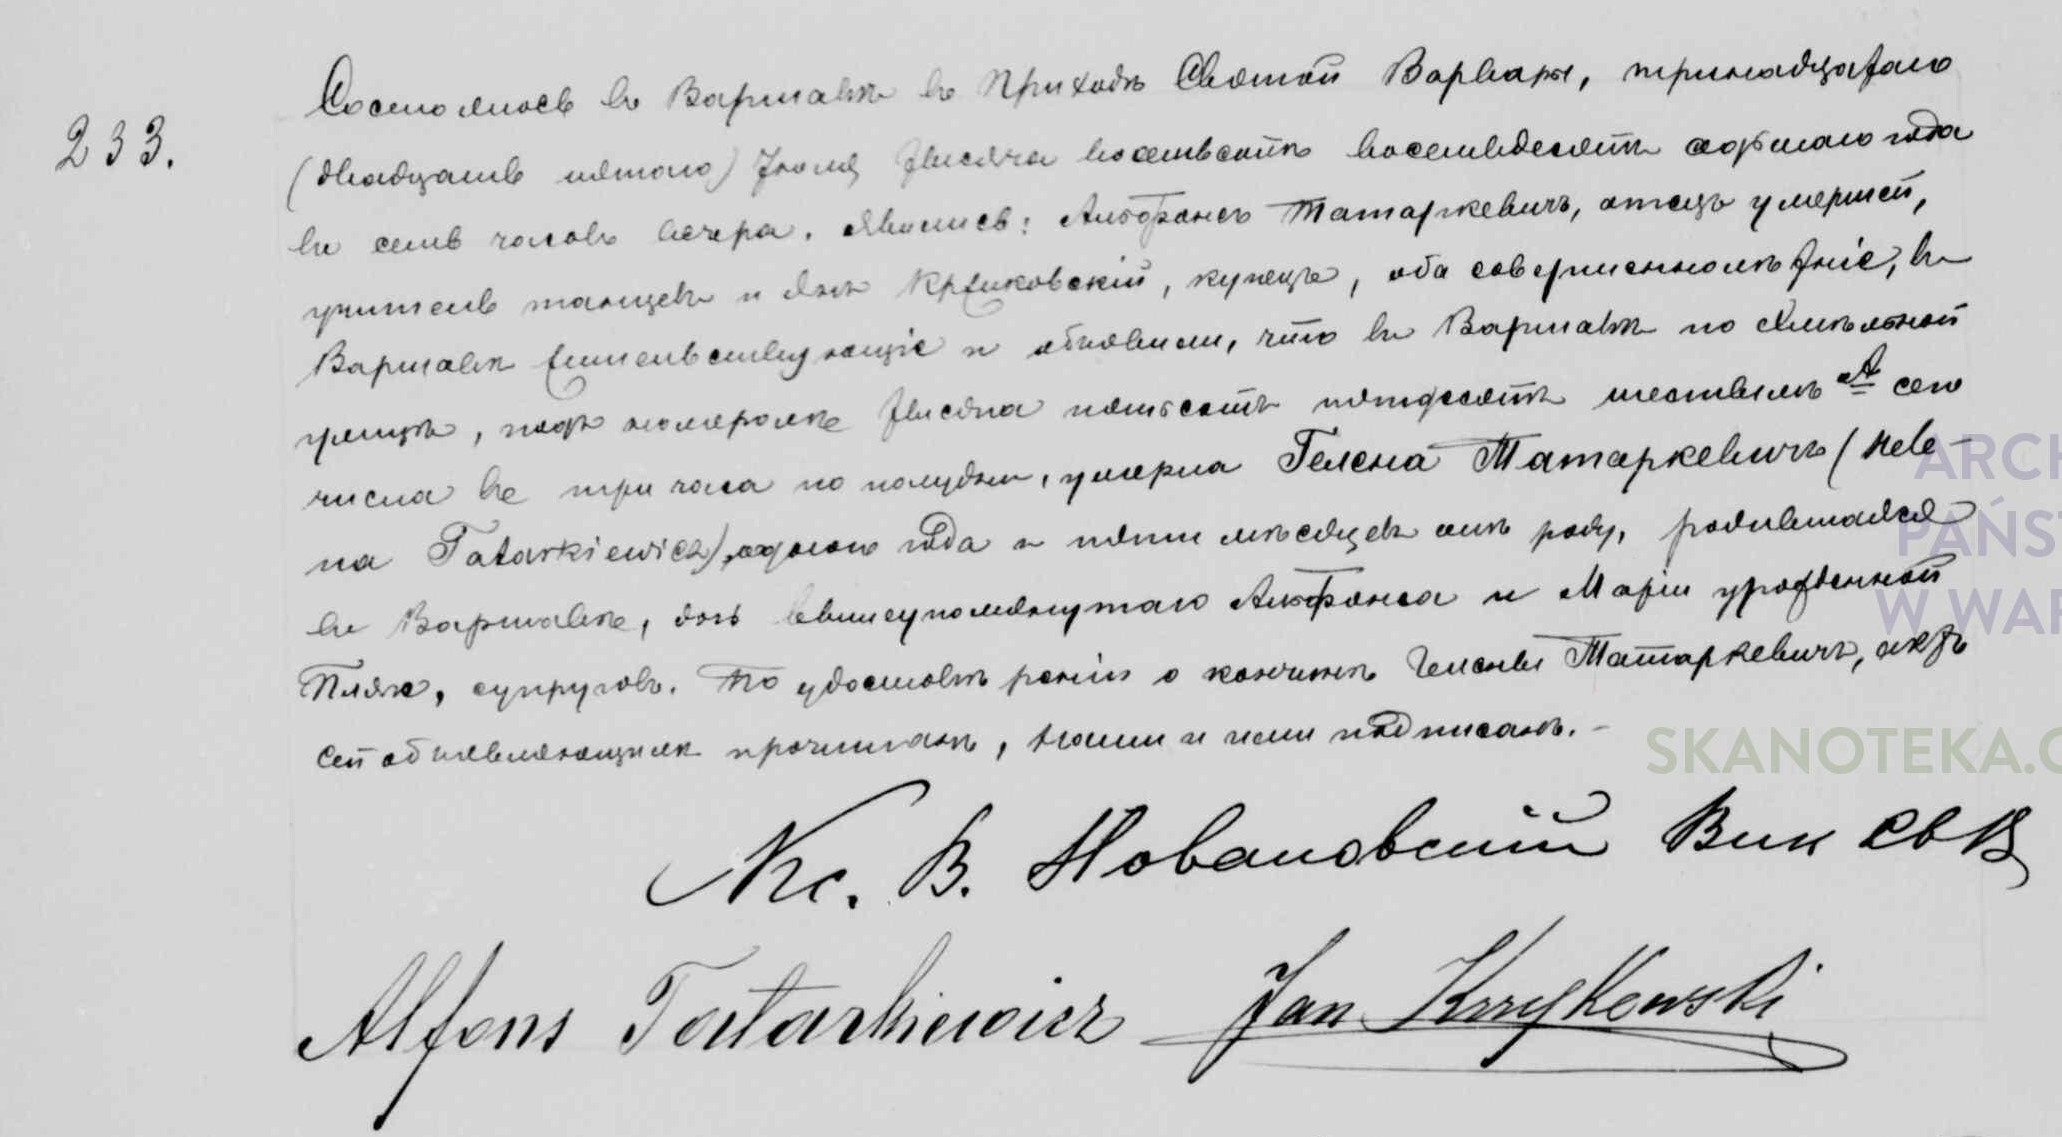 233.
Состоялось въ Варшавѣ въ Приходѣ Святой Варвары, тринадцатаго
(двадцать пятаго) Іюля тысяча восемьсотъ восемьдесятъ седьмаго года
въ семь часовъ вечера. Явились: Альфонсъ Татаркевичъ, отецъ умершей,
учитель танцевъ и Янъ Крыжковскій, купецъ, оба совершеннолѣтніе, въ
Варшавѣ жительствующіе и объявили, что въ Варшавѣ по
улицѣ, подъ номеромъ тысяча пятьсотъ пятдесятъ шестымъ А сего
числа въ три часа по полудни, умерла Гелена Татаркевичъ (Hele-
na Tatarkiewicz), одного года и пяти мѣсяцевъ отъ роду, родившаяся
въ Варшавѣ, дочь вышеупомянутаго Альфонса и Маріи урожденной
Пляж, супруговъ. По удостовѣреніи о кончинѣ Гелены Татаркевичъ, актъ
сей объявляющимъ прочитанъ, Нами и ими подписанъ. -
Кс. В. Вик Св В
Alfons Tatarkiewicz Jan Krzykowski
ARCH
PAŃST
W WAR
SKANOTEKA.G